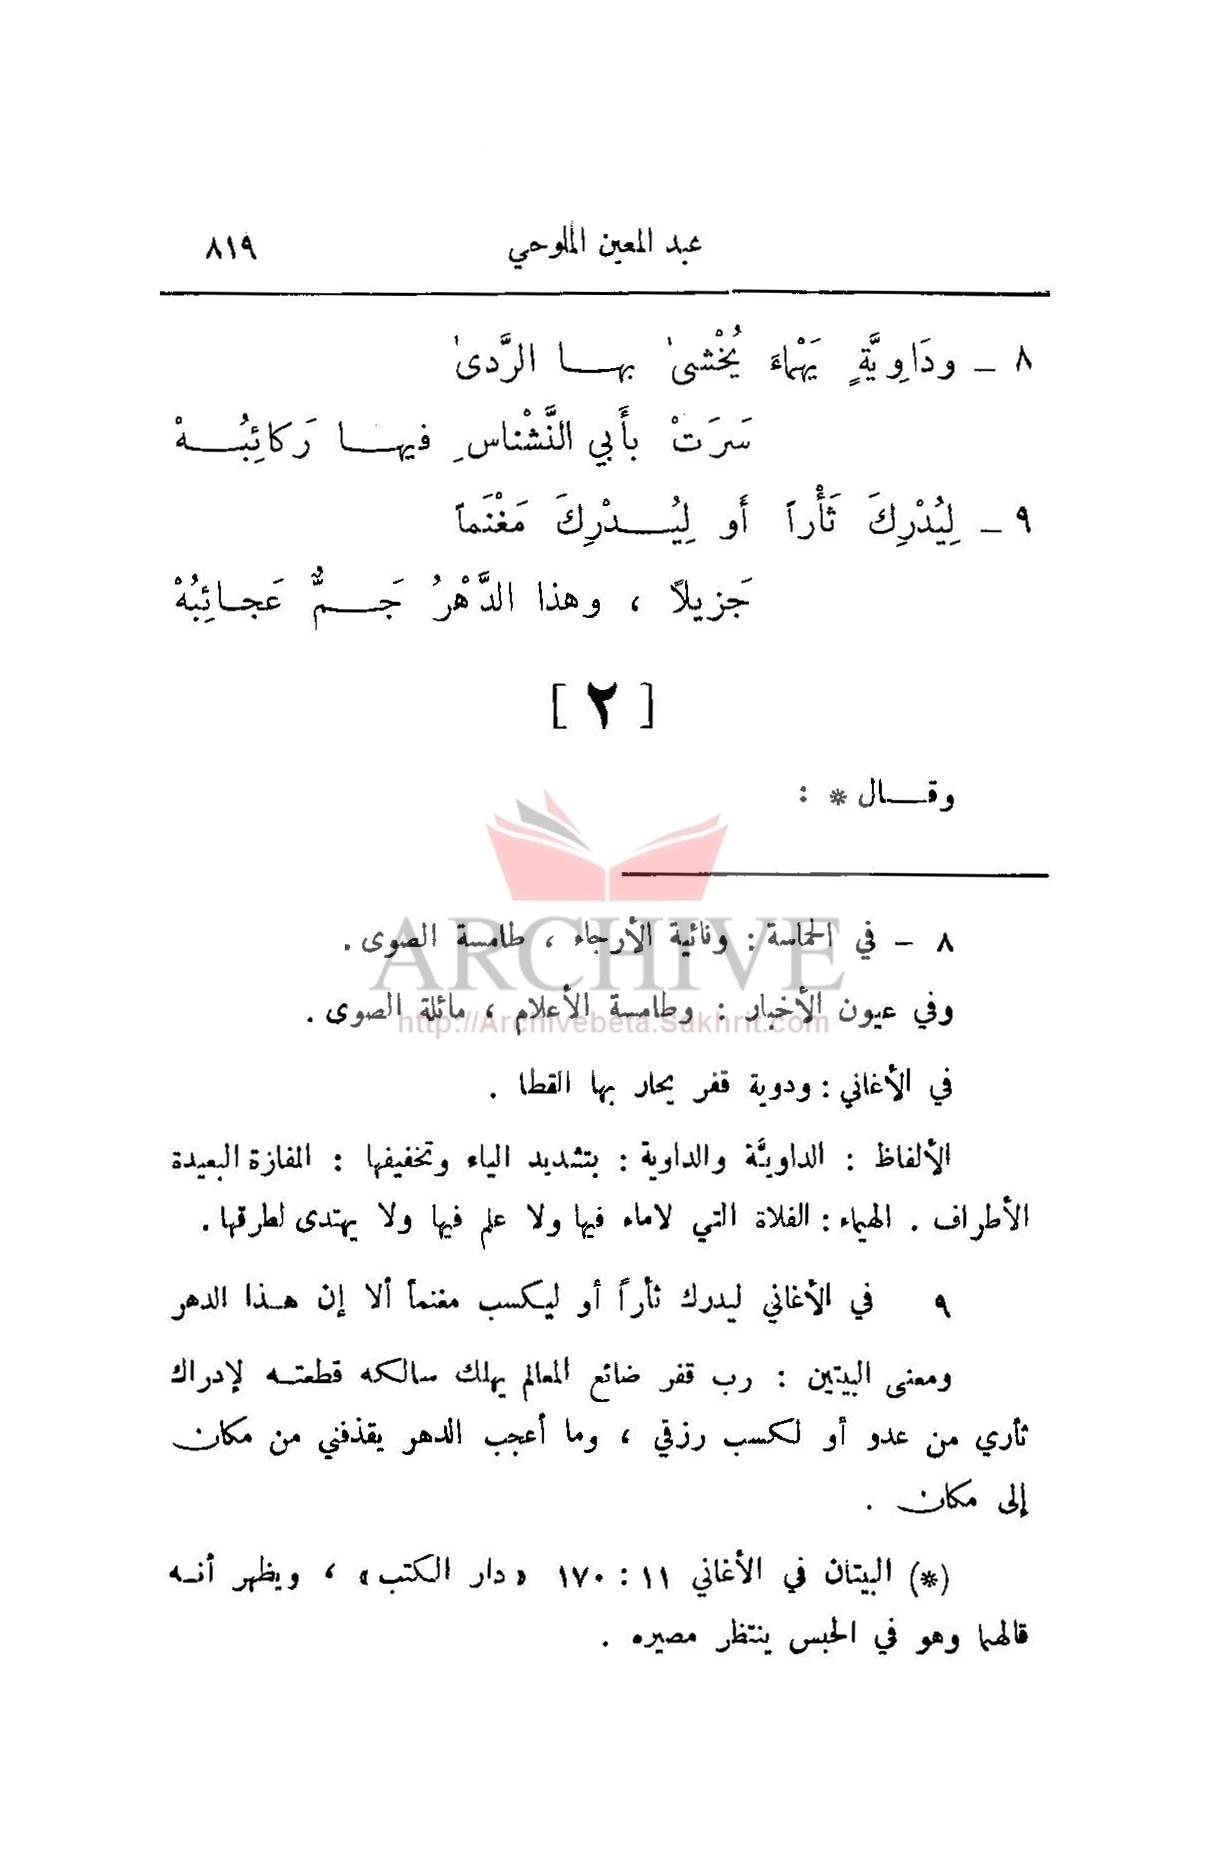 عبد المعين الملوحي ٨١٩
٨ ــ ودَاوِيَّةٍ يَهْمَاءَ يُخْشىٰ بهـــا الرَّدىٰ
سَرَتْ بأَبي النَّشْناسِ فيهـــا رَكائِبُــهْ
٩ ــ لِيُدْرِكَ ثَأْراً أَو لِيُـــدْرِكَ مَغْنَماً
جَزيلاً ، وهذا الدَّهْرُ جَـــمٌّ عَجـائِبُهْ
[ ٢ ]
وقـــال * :
ARCHIVE
http://Archivebeta.Sakhrit.com
٨ – في الحماسة : ونائية الأرجاء ، طامسة الصوى .
وفي عيون الأخبار : وطامسة الأعلام ، مائلة الصوى .
في الأغاني : ودوية قفر يحار بها القطا .
الألفاظ : الداويَّة والداوية : بتشديد الياء وتخفيفها : المفازة البعيدة
الأطراف . الهيماء : الفلاة التي لاماء فيها ولا علم فيها ولا يهتدى لطرقها .
٩ في الأغاني ليدرك ثأراً أو ليكسب مغنماً ألا إن هـذا الدهر
ومعنى البيتين : رب قفر ضائع المعالم يهلك سالكه قطعتـه لإدراك
ثأري من عدو أو لكسب رزقي ، وما أعجب الدهر يقذفني من مكان
إلى مكان .
(*) البيتان في الأغاني ١١ : ١٧٠ «دار الكتب» ، ويظهر أنـه
قالهما وهو في الحبس ينتظر مصيره .